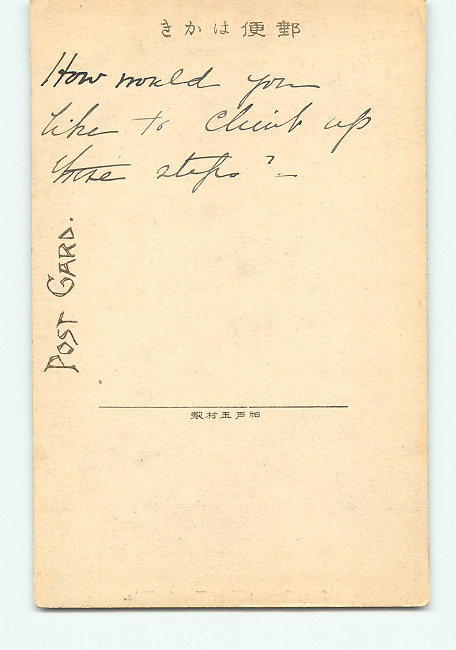 きかは便郵
How would you
like to climb up
these steps? –
POST CARD.
製村玉戸神